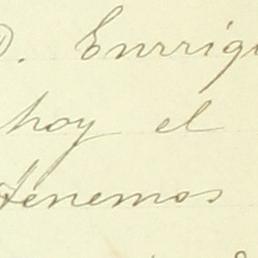 D. Enrriqu
hoy el
tenemos